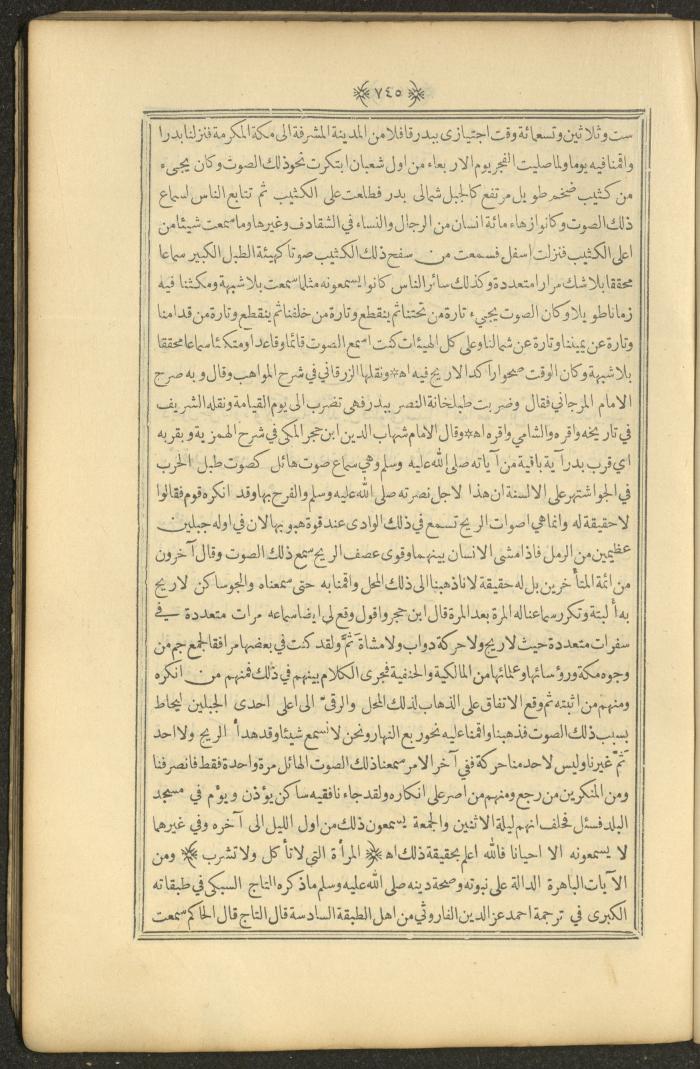 ﴿ ٧٤٥ ﴾
ست وثلاثين وتسعمائة وقت اجتيازى ببدر قافلا من المدينة المشرفة الى مكة المكرمة فنزلنا بدرا
واقمنا فيه يوما ولما صليت الفجر يوم الاربعاء من اول شعبان ابتكرت نحو ذلك الصوت وكان يجىء
من كثيب ضخم طويل مرتفع كالجبل شمالى بدر فطلعت على الكثيب ثم تتابع الناس لسماع
ذلك الصوت وكانوا زهاء مائة انسان من الرجال والنساء فى الشقادف وغيرها وما سمعت شيئا من
اعلى الكثيب فنزلت اسفل فسمعت من سفح ذلك الكثيب صوتا كهيئة الطبل الكبير سماعا
محققا بلا شك مرارا متعددة وكذلك سائر الناس كانوا يسمعونه مثلما سمعت بلا شبهة ومكثنا فيه
زمانا طويلا وكان الصوت يجىء تارة من تحتنا ثم ينقطع وتارة من خلفنا ثم ينقطع وتارة من قدامنا
وتارة عن يميننا وتارة عن شمالنا وعلى كل الهيئات كنت اسمع الصوت قائما وقاعدا ومتكئا سماعا محققا
بلا شبهة وكان الوقت صحوا راكدا لا ريح فيه اه * ونقلها الزرقاني في شرح المواهب وقال وبه صرح
الامام المرجاني فقال وضربت طبلخانة النصر ببدر فهى تضرب الى يوم القيامة ونقله الشريف
في تاريخه واقره والشامي واقره اه * وقال الامام شهاب الدين ابن حجر المكى في شرح الهمزية وبقربه
اى قرب بدر آية باقية من آياته صلى الله عليه وسلم وهي سماع صوت هائل كصوت طبل الحرب
في الجو اشتهر على الالسنة ان هذا لاجل نصرته صلى الله عليه وسلم والفرح بها وقد انكره قوم فقالوا
لا حقيقة له وانما هى اصوات الريح تسمع في ذلك الوادى عند قوة هبوبها لان في اوله جبلين
عظيمين من الرمل فاذا مشى الانسان بينهما وقوى عصف الريح سمع ذلك الصوت وقال آخرون
من ائمة المتأخرين بل له حقيقة لانا ذهبنا الى ذلك المحل واقمنا به حتى سمعناه والجو ساكن لا ريح
به ألبتة وتكرر سماعنا له المرة بعد المرة قال ابن حجر واقول وقع لى ايضا سماعه مرات متعددة في
سفرات متعددة حيث لا ريح ولا حركة دواب ولا مشاة ثَمَّ ولقد كنت في بعضها مرافقا لجمع جم من
وجوه مكة ورؤسائها وعلمائها من المالكية والحنفية فجرى الكلام بينهم في ذلك فمنهم من انكره
ومنهم من اثبته ثم وقع الاتفاق على الذهاب لذلك المحل والرقىّ الى اعلى احدى الجبلين ليحاط
بسبب ذلك الصوت فذهبنا واقمنا عليه نحو ربع النهار ونحن لا نسمع شيئا وقد هدأ الريح ولا احد
ثَمَّ غيرنا وليس لاحد منا حركة ففي آخر الامر سمعنا ذلك الصوت الهائل مرة واحدة فقط فانصرفنا
ومن المنكرين من رجع ومنهم من اصر على انكاره ولقد جاءنا فقيه ساكن يؤذن ويؤم في مسجد
البلد فسئل فحلف انهم ليلة الاثنين والجمعة يسمعون ذلك من اول الليل الى آخره وفي غيرها
لا يسمعونه الا احيانا فالله اعلم بحقيقة ذلك اه ﴿ المرأة التي لا تأكل ولا تشرب ﴾ ومن
الآيات الباهرة الدالة على نبوته وصحة دينه صلى الله عليه وسلم ما ذكره التاج السبكى في طبقاته
الكبرى في ترجمة احمد عز الدين الفاروثي من اهل الطبقة السادسة قال التاج قال الحاكم سمعت